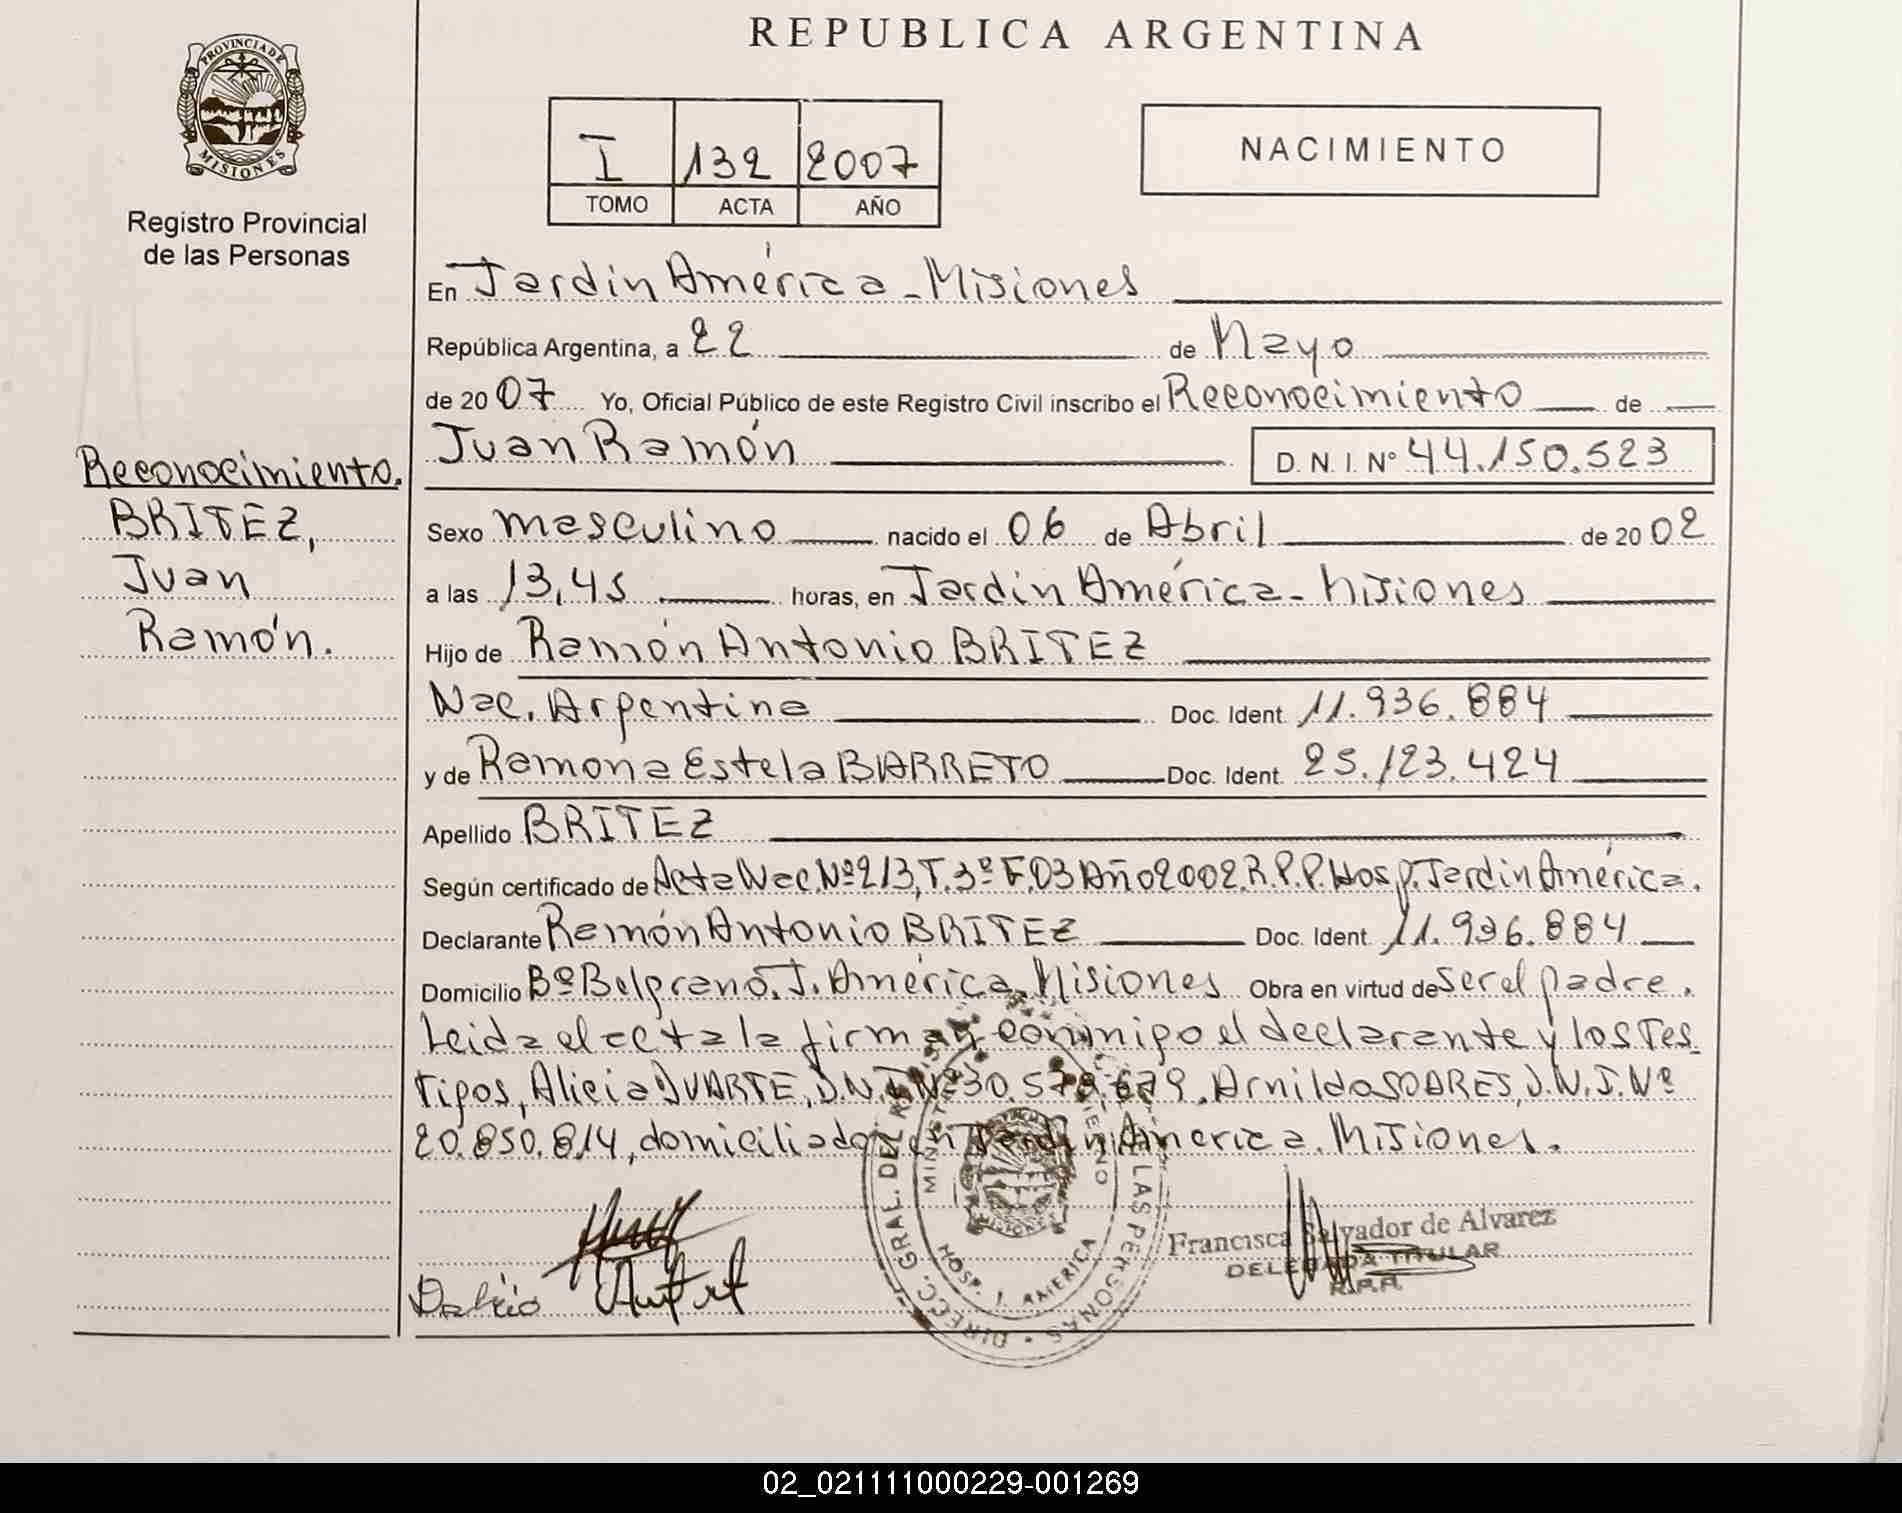 REPUBLICA ARGENTINA
PROVINCIA DE
MISIONES
Registro Provincial
de las Personas
I 132 2007
TOMO ACTA AÑO
NACIMIENTO
En Jardín América - Misiones
República Argentina, a 22 de Mayo
de 2007 Yo, Oficial Público de este Registro Civil inscribo el Reconocimiento de
Juan Ramón D.N.I. Nº 44.150.523
Reconocimiento.
BRITEZ,
Juan
Ramón.
Sexo masculino nacido el 06 de Abril de 2002
a las 13,45 horas, en Jardín América - Misiones
Hijo de Ramón Antonio BRITEZ
Nac. Argentina Doc. Ident. 11.936.884
y de Ramona Estela BARRETO Doc. Ident. 25.123.424
Apellido BRITEZ
Según certificado de Acta Nac. Nº 213, T. 3º F. 03 Año 2002. R.P.P. Hosp. Jardín América.
Declarante Ramón Antonio BRITEZ Doc. Ident. 11.936.884
Domicilio Bº Belgrano. J. América. Misiones Obra en virtud de ser el padre.
Leida el acta la firman conmigo el declarante y los Tes_
tigos, Alicia DUARTE, D.N.I. Nº 30.579.679, Arnildo SOARES, D.N.I. Nº
20.850.814, domiciliados en Jardín America. Misiones.
DIRECC. GRAL. DEL LAS PERSONAS
HOSP. J. AMERICA
Francisca Salvador de Alvarez
DELEGADA TITULAR
R.P.P.
02_021111000229-001269